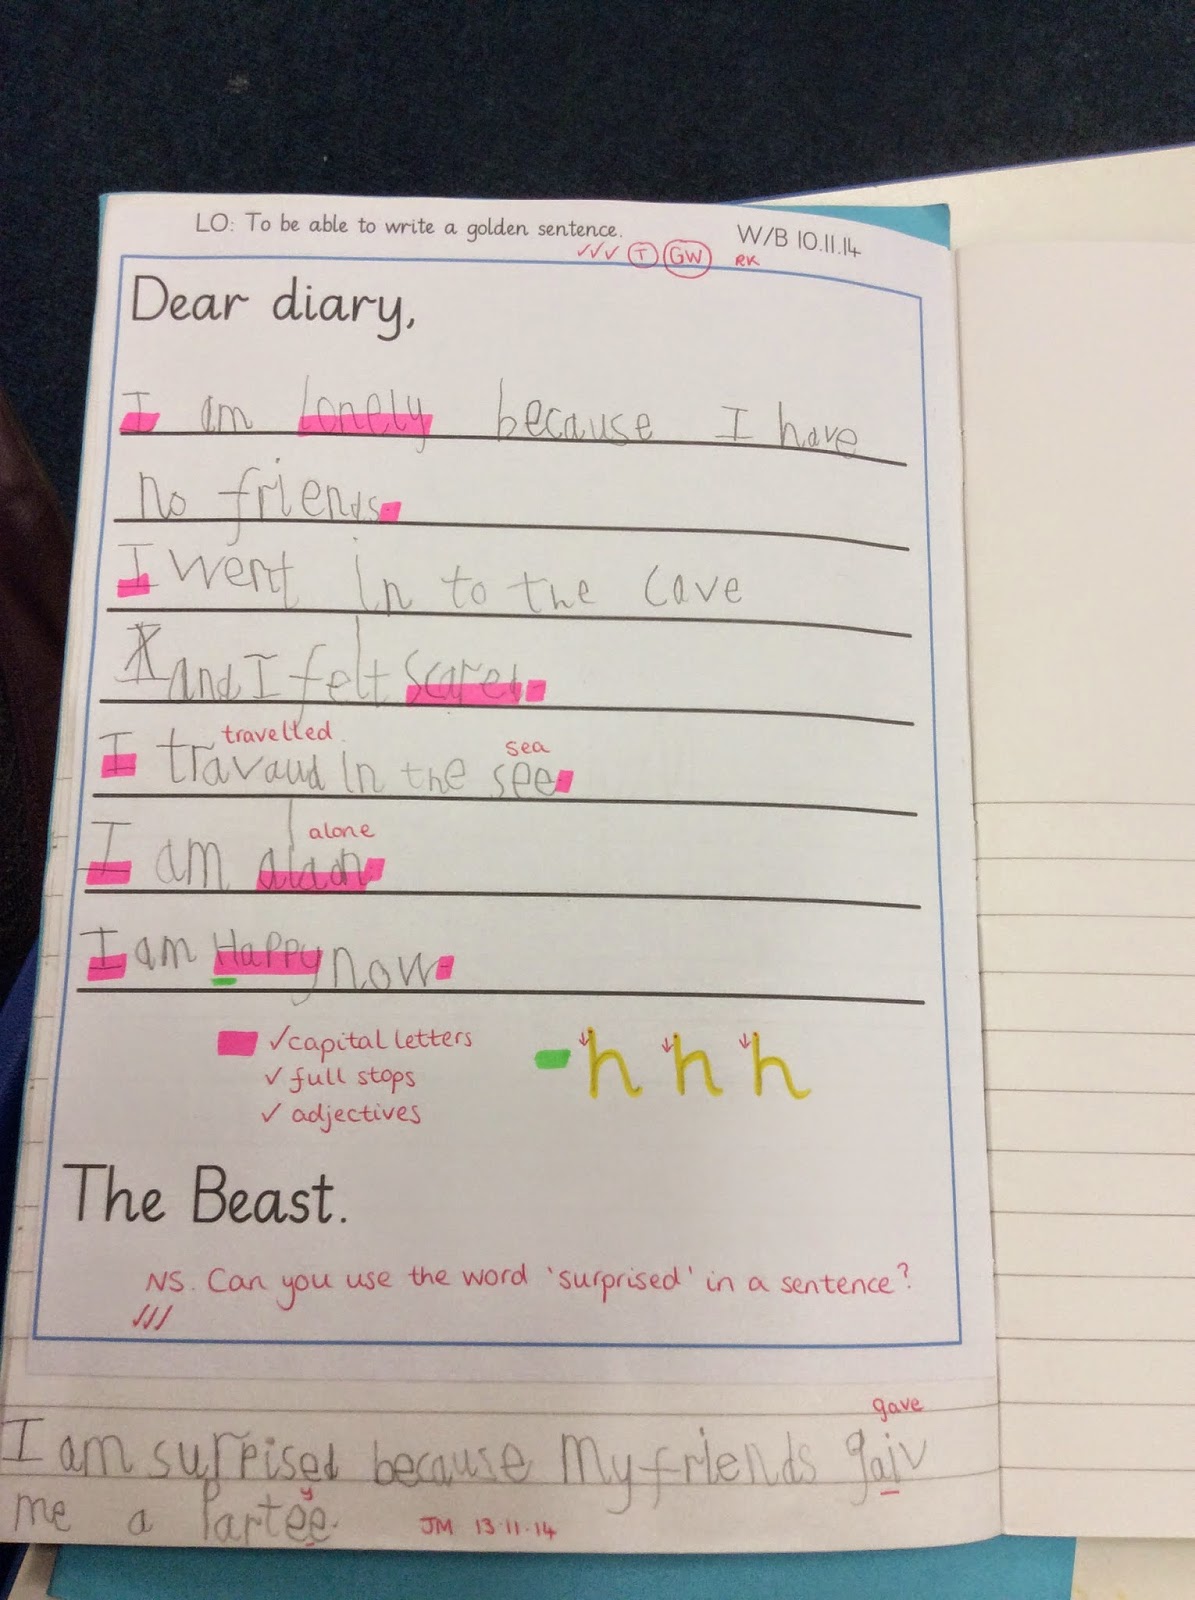 LO: To be able to write a golden sentence.
W/B 10.11.14
✓✓✓ T GW RK
Dear diary,
I am lonely because I have
no friends.
I went in to the cave
and I felt scared.
travelled sea
I travaud in the see.
alone
I am alaon.
I am Happy now.
✓ capital letters
✓ full stops
✓ adjectives
h h h
The Beast.
NS. Can you use the word 'surprised' in a sentence?
✓✓✓
gave
I am surprised because my friends gaiv
y
me a Partee.
JM 13.11.14